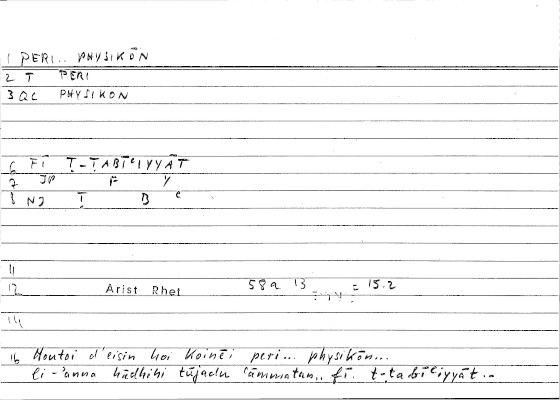 1 PERI.. PHYSIKŌN
2 T PERI
3 QC PHYSIKON
6 FĪ Ṭ-ṬABĪʿIYYĀT
7 JP F Y
8 NJ Ṭ B ʿ
11
12 Arist Rhet 58a 13 = 15.2
14
16 Houtoi d'eisin hoi koinēi peri... physikōn...
li-'anna hādhihi tūjadu ʿāmmatan.. fī. ṭ-ṭabīʿiyyāt..